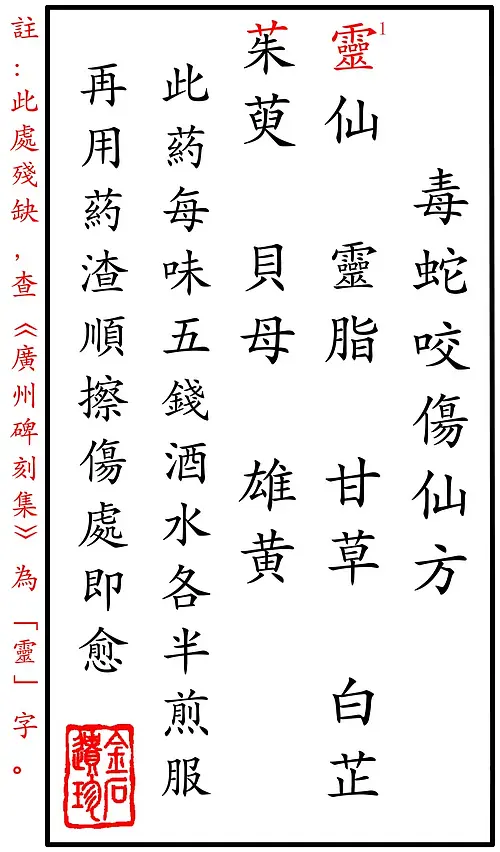 毒蛇咬傷仙方
靈1仙 靈脂 甘草 白芷
茱萸 貝母 雄黃
此葯每味五錢酒水各半煎服
再用葯渣順擦傷處即愈
金石遺珍
註：此處殘缺，查《廣州碑刻集》為「靈」字。